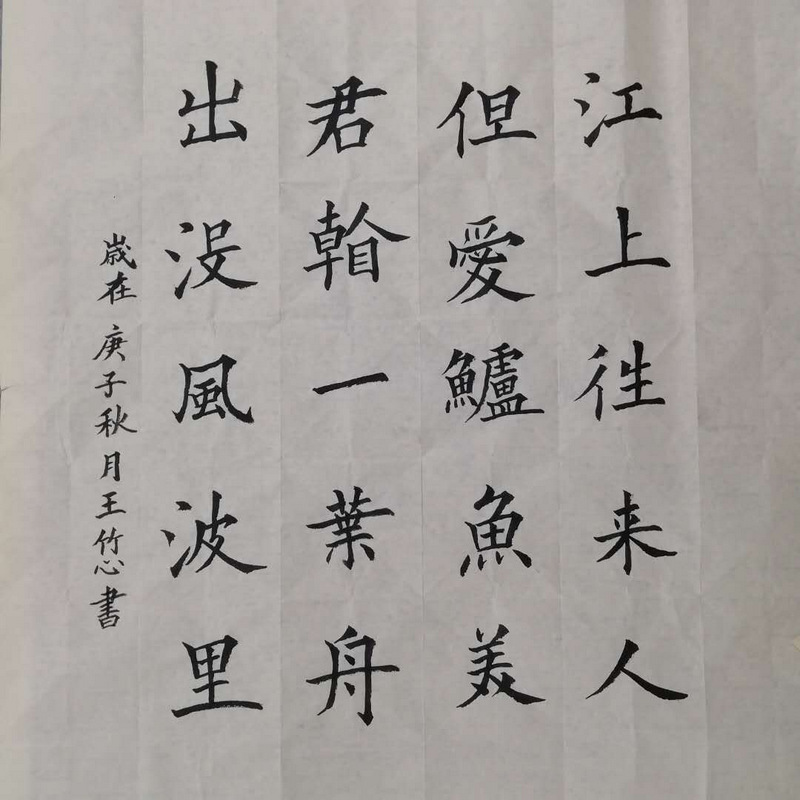 江上徃来人
但愛鱸魚美
君一葉舟
出没風波里
嵗在庚子秋月王竹心書